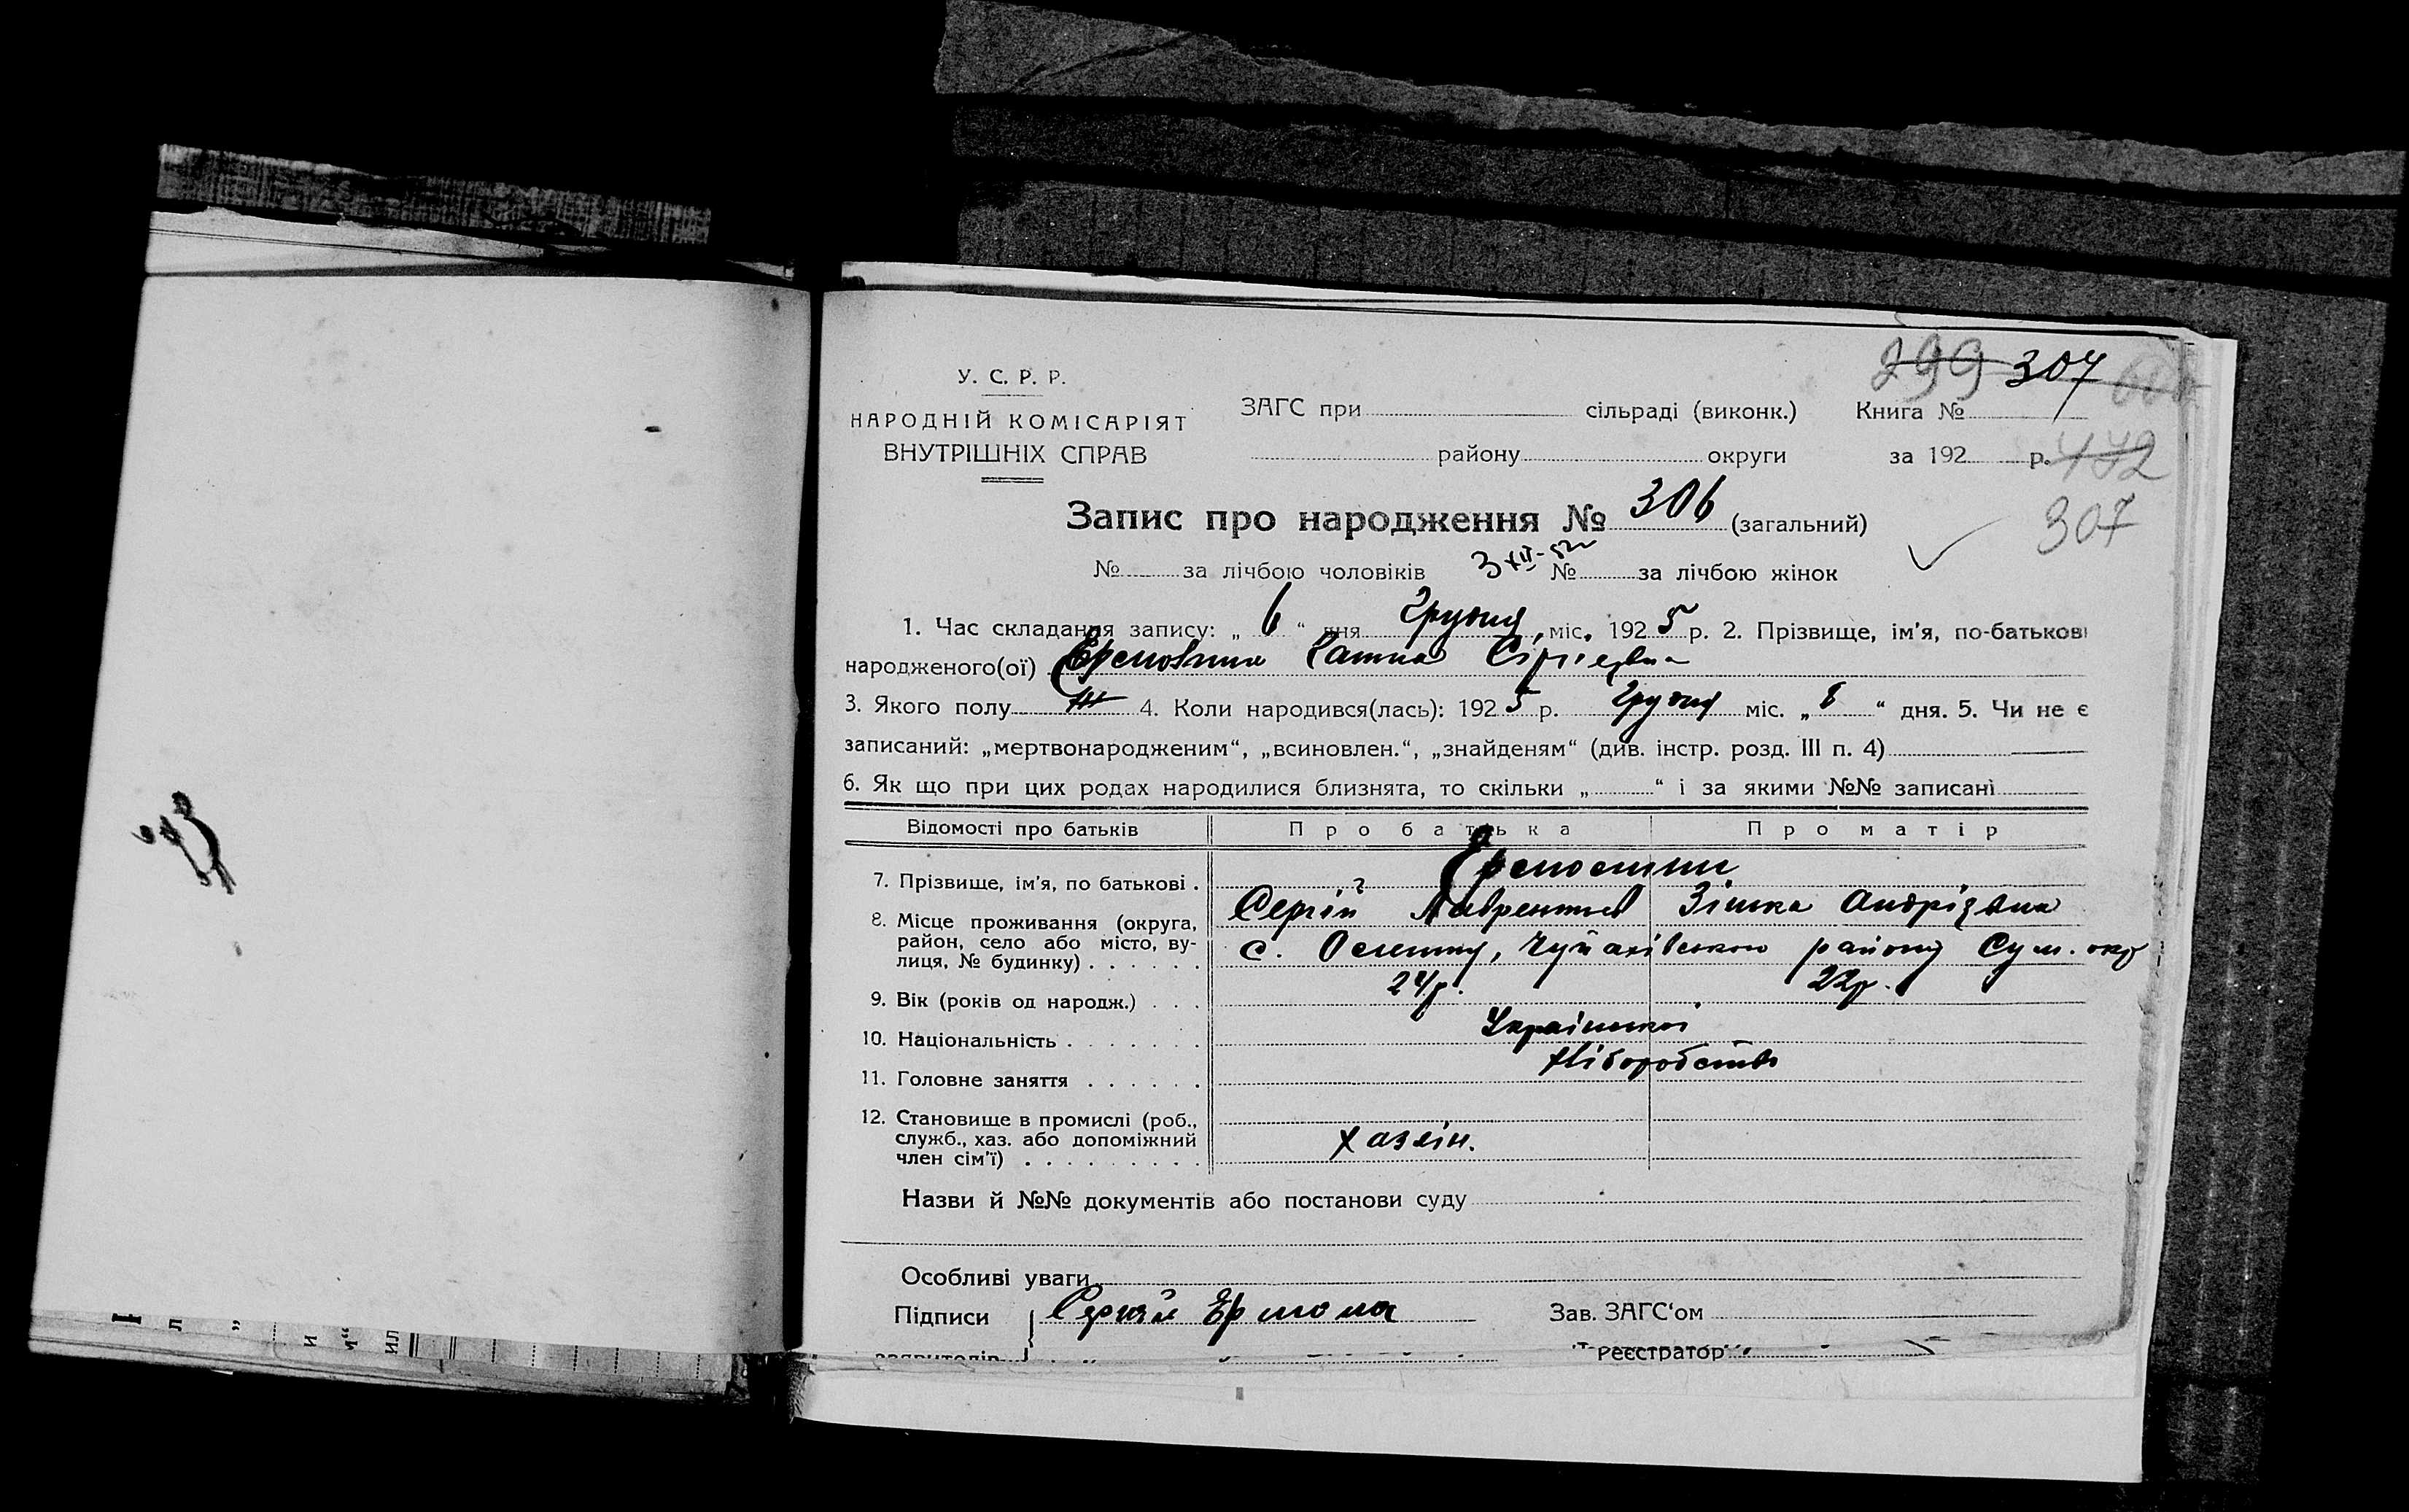 299 307
У. С. Р. Р.
НАРОДНІЙ КОМІСАРІЯТ
ВНУТРІШНІХ СПРАВ
ЗАГС при сільраді (виконк.) Книга №
району округи за 192 р. 472
307
Запис про народження № 306 (загальний)
№ за лічбою чоловіків 3 XII-52 № за лічбою жінок
1. Час складання запису: „ 6 “ дня Грудня міс. 1925 р. 2. Прізвище, ім'я, по-батькові
народженого(ої) Сергієвна
3. Якого полу Ж 4. Коли народився(лась): 1925 р. Грудня міс. „ “ дня. 5. Чи не є
записаний: „мертвонародженим“, „всиновлен.“, „знайденям“ (див. інстр. розд. III п. 4)
6. Як що при цих родах народилися близнята, то скільки „ “ і за якими №№ записані
Відомості про батьків Про батька Про матір
7. Прізвище, ім'я, по батькові .
Сергій Лаврентьев Зінька Андріевна
8. Місце проживання (округа,
район, село або місто, ву-
лиця, № будинку) . . . . . . с. , району Сум. окр
9. Вік (років од народж.) . . . 24р. 22р.
10. Національність . . . . . . . Української
11. Головне заняття . . . . . . Хліборобство
12. Становище в промислі (роб.,
служб., хаз. або допоміжний
член сім'ї) . . . . . . . . . Хазяїн.
Назви й №№ документів або постанови суду
Особливі уваги
Підписи Сергій Зав. ЗАГС‘ом
заявителів Реєстратор